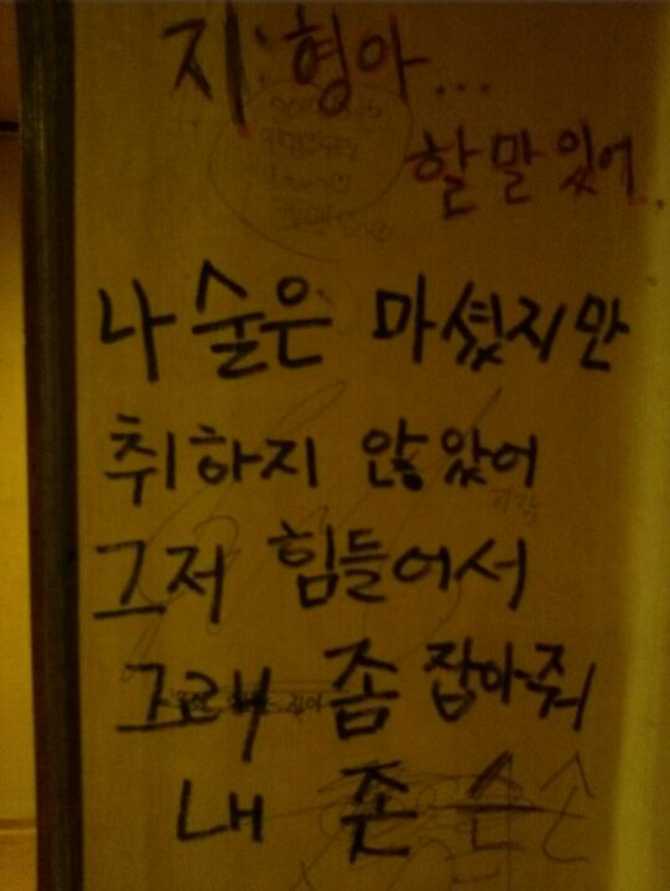 지: 형아...
할 말 있어..
나 술은 마셨지만
취하지 않았어
그저 힘들어서
그래 좀 잡아줘
내 좆 손